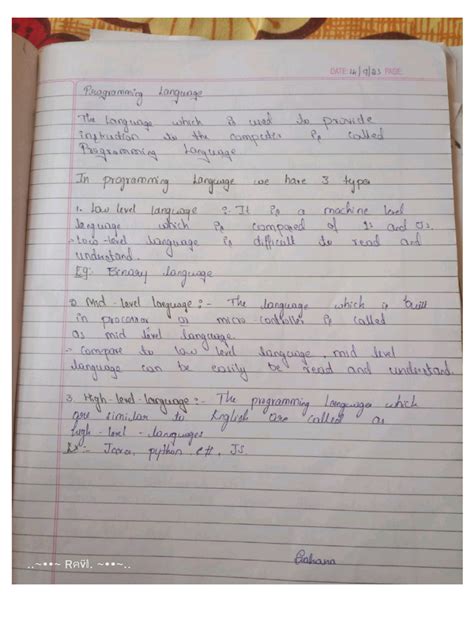 DATE: 14/9/23 PAGE:
Programming Language
The language which is used to provide
instruction to the computer is called
Programming Language
In programming Language we have 3 types
1. Low level language :- It is a machine level
language which is composed of 1s and 0s.
- Low-level language is difficult to read and
understand.
Eg: Binary language
2. Mid-level language :- The language which is built
in processor or micro controller is called
as mid level language.
- Compare to low level language, mid level
language can be easily be read and understand.
3. High-level-language :- The programming language which
are similar to English are called as
high-level-languages
Ex:- Java, python c#, JS.
..~••~ Ravi. ~••~..